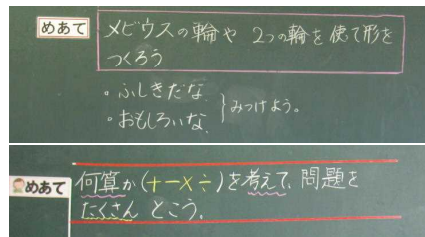 めあて
メビウスの輪や 2つの輪を使て形を
つくろう
・ふしきだな
・おもしろいな } みつけよう。
めあて
何算か(+-×÷)を考えて、問題を
たくさん とこう。